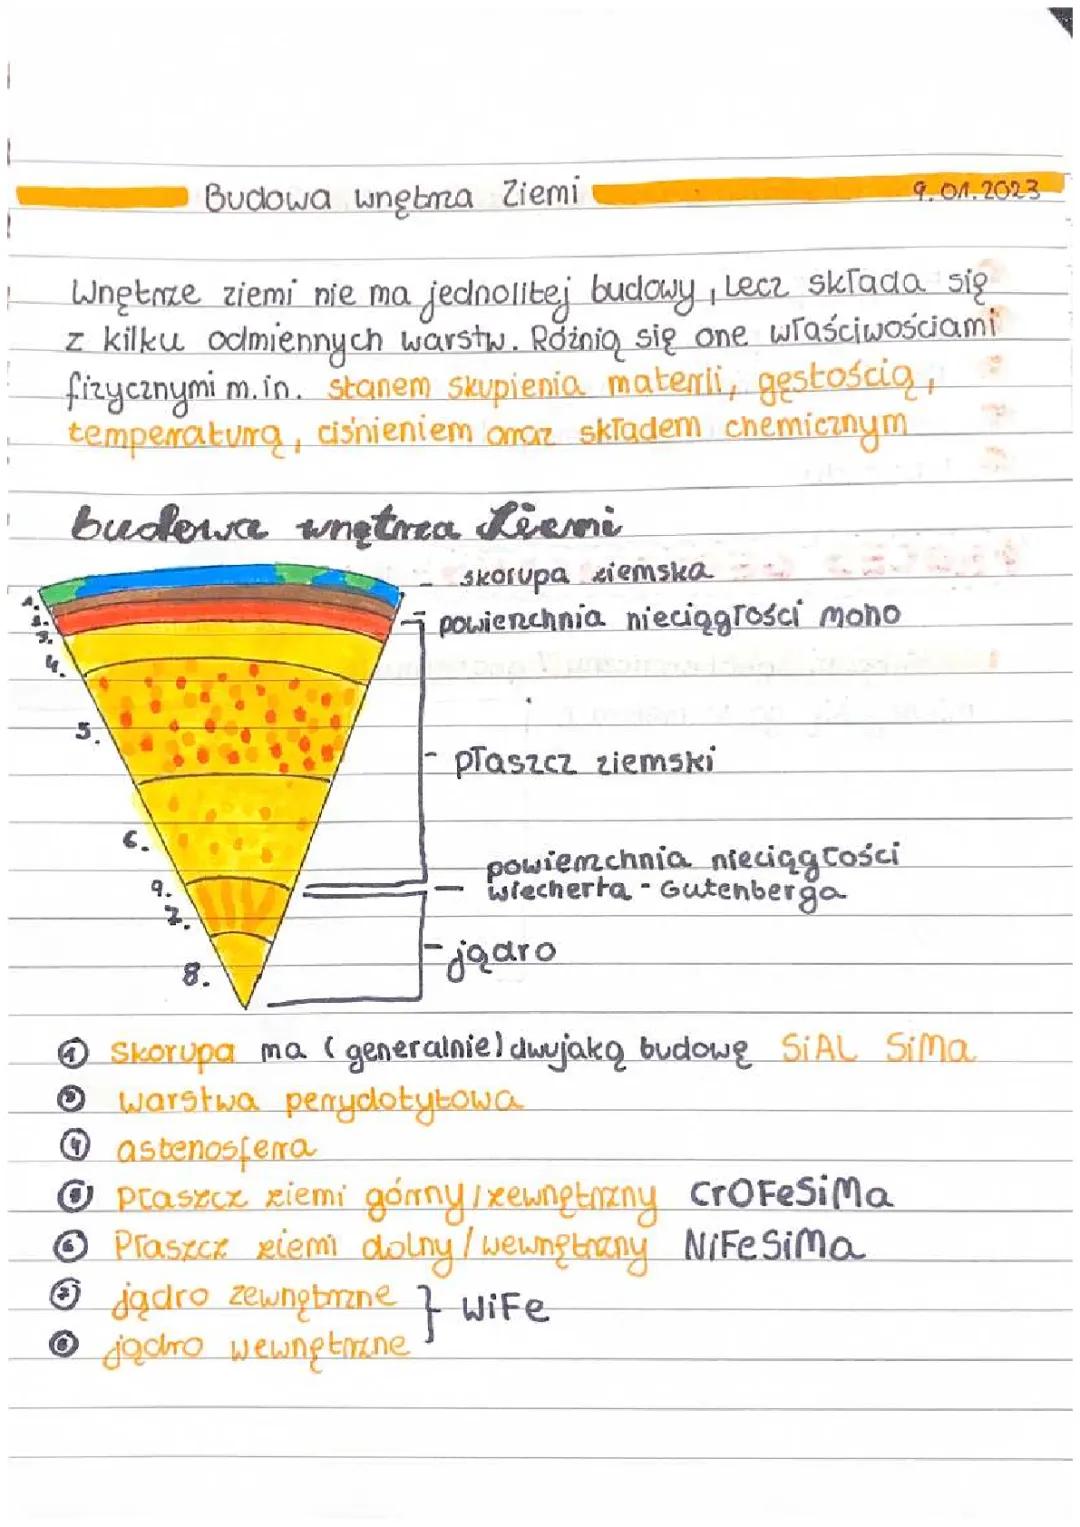 Budowa wnętrza Ziemi
9.01.2023
Wnętrze ziemi nie ma jednolitej budowy, Lecz składa się
z kilku odmiennych warstw. Różnią się one właściwościami
fizycznymi m.in. stanem skupienia materii, gęstością,
temperaturą, ciśnieniem oraz składem chemicznym
budowa wnętrza Ziemi
skorupa ziemska
1.
2.
powierzchnia nieciągłości moho
3.
4.
5.
płaszcz ziemski
6.
powierzchnia nieciągłości
9.
wiecherta - Gutenberga
7.
jądro
8.
1 Skorupa ma (generalnie) dwujaką budowę SiAL SiMa
3 warstwa perydotytowa
4 astenosfera
5 płaszcz ziemi górny/zewnętrzny CrOFeSiMa
6 Płaszcz ziemi dolny/wewnętrzny NiFeSiMa
7 jądro zewnętrzne } WiFe
8 jądro wewnętrzne